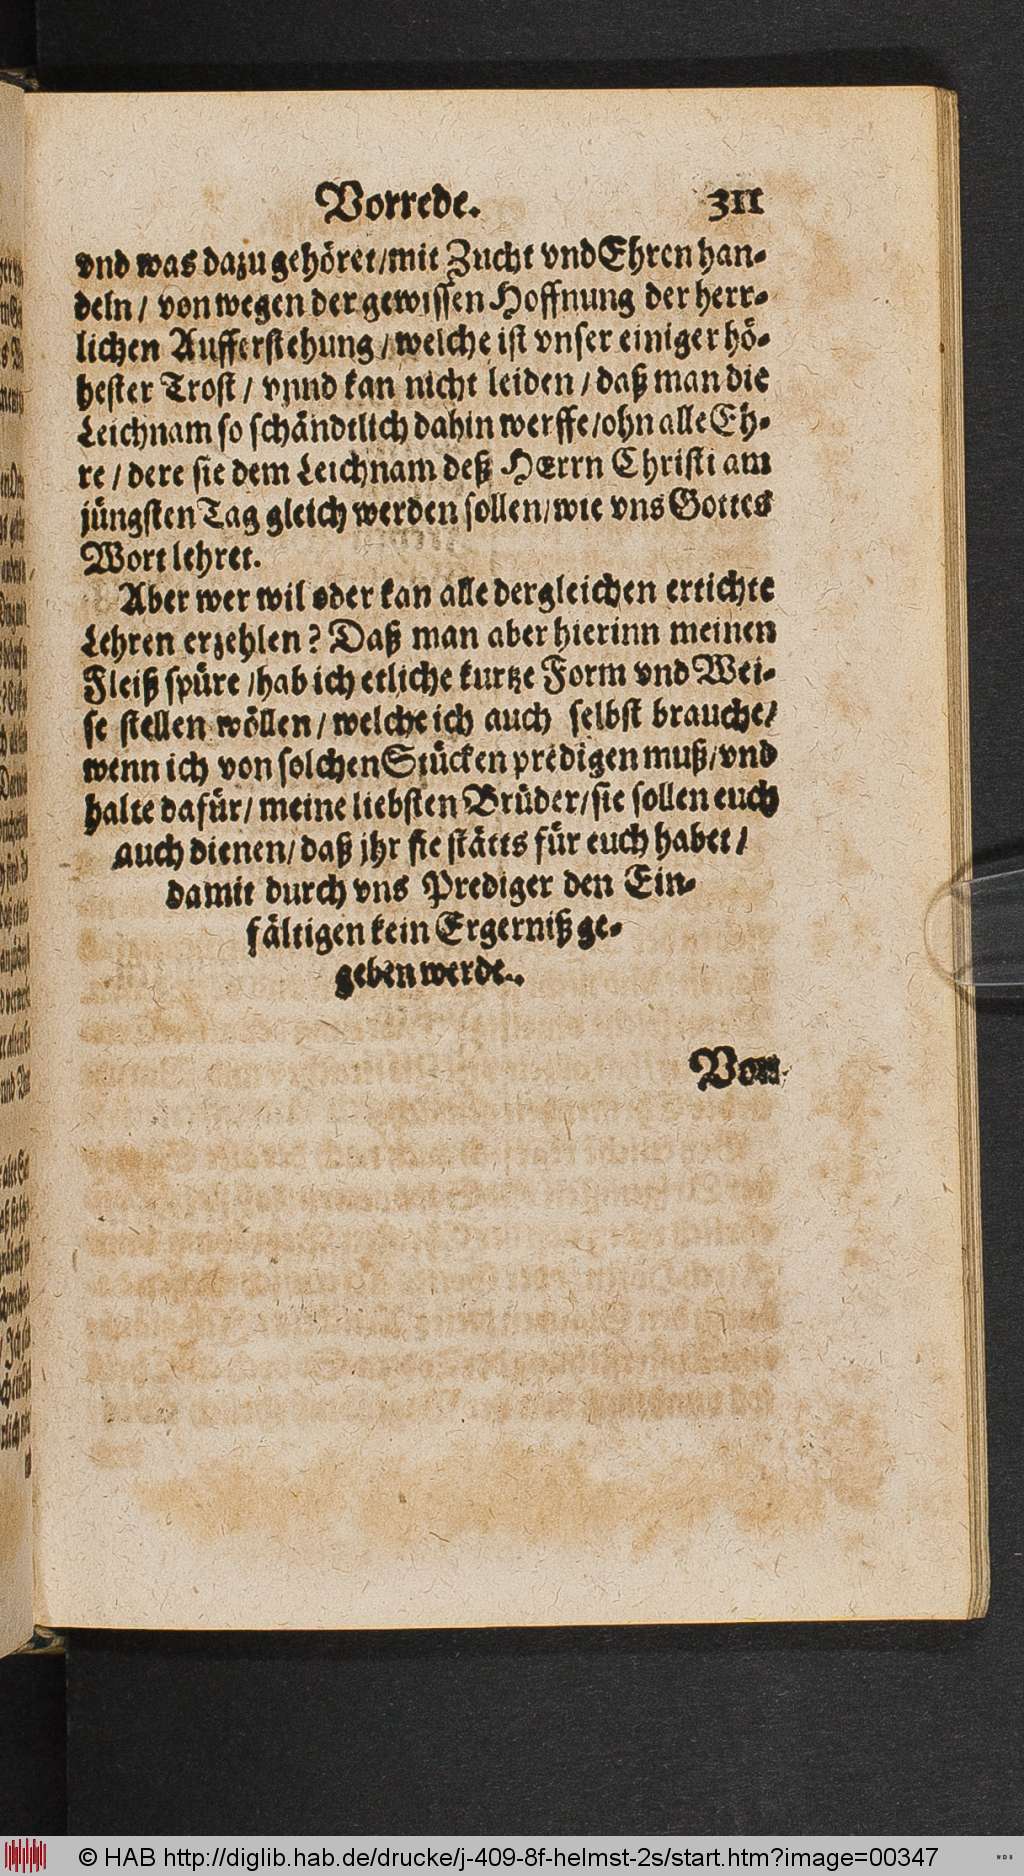 Vorrede. 311
vnd was dazu gehöret/mit Zucht vnd Ehren han-
deln/ von wegen der gewissen Hoffnung der herr-
lichen Aufferstehung/welche ist vnser einiger hö-
hester Trost/ vnnd kan nicht leiden/daß man die
Leichnam so schändtlich dahin werffe/ohn alle Eh-
re/dere sie dem Leichnam deß HErrn Christi am
jüngsten Tag gleich werden sollen/wie vns Gottes
Wort lehret.
Aber wer wil oder kan alle dergleichen ertichte
Lehren erzehlen? Daß man aber hierinn meinen
Fleiß spüre/hab ich etliche kurtze Form vnd Wei-
se stellen wöllen/welche ich auch selbst brauche/
wenn ich von solchen Stücken predigen muß/vnd
halte dafür/meine liebsten Brüder/sie sollen euch
auch dienen/daß jhr sie stätts für euch habet/
damit durch vns Prediger den Ein-
fältigen kein Ergerniß ge-
geben werde.
Von
© HAB http://diglib.hab.de/drucke/j-409-8f-helmst-2s/start.htm?image=00347